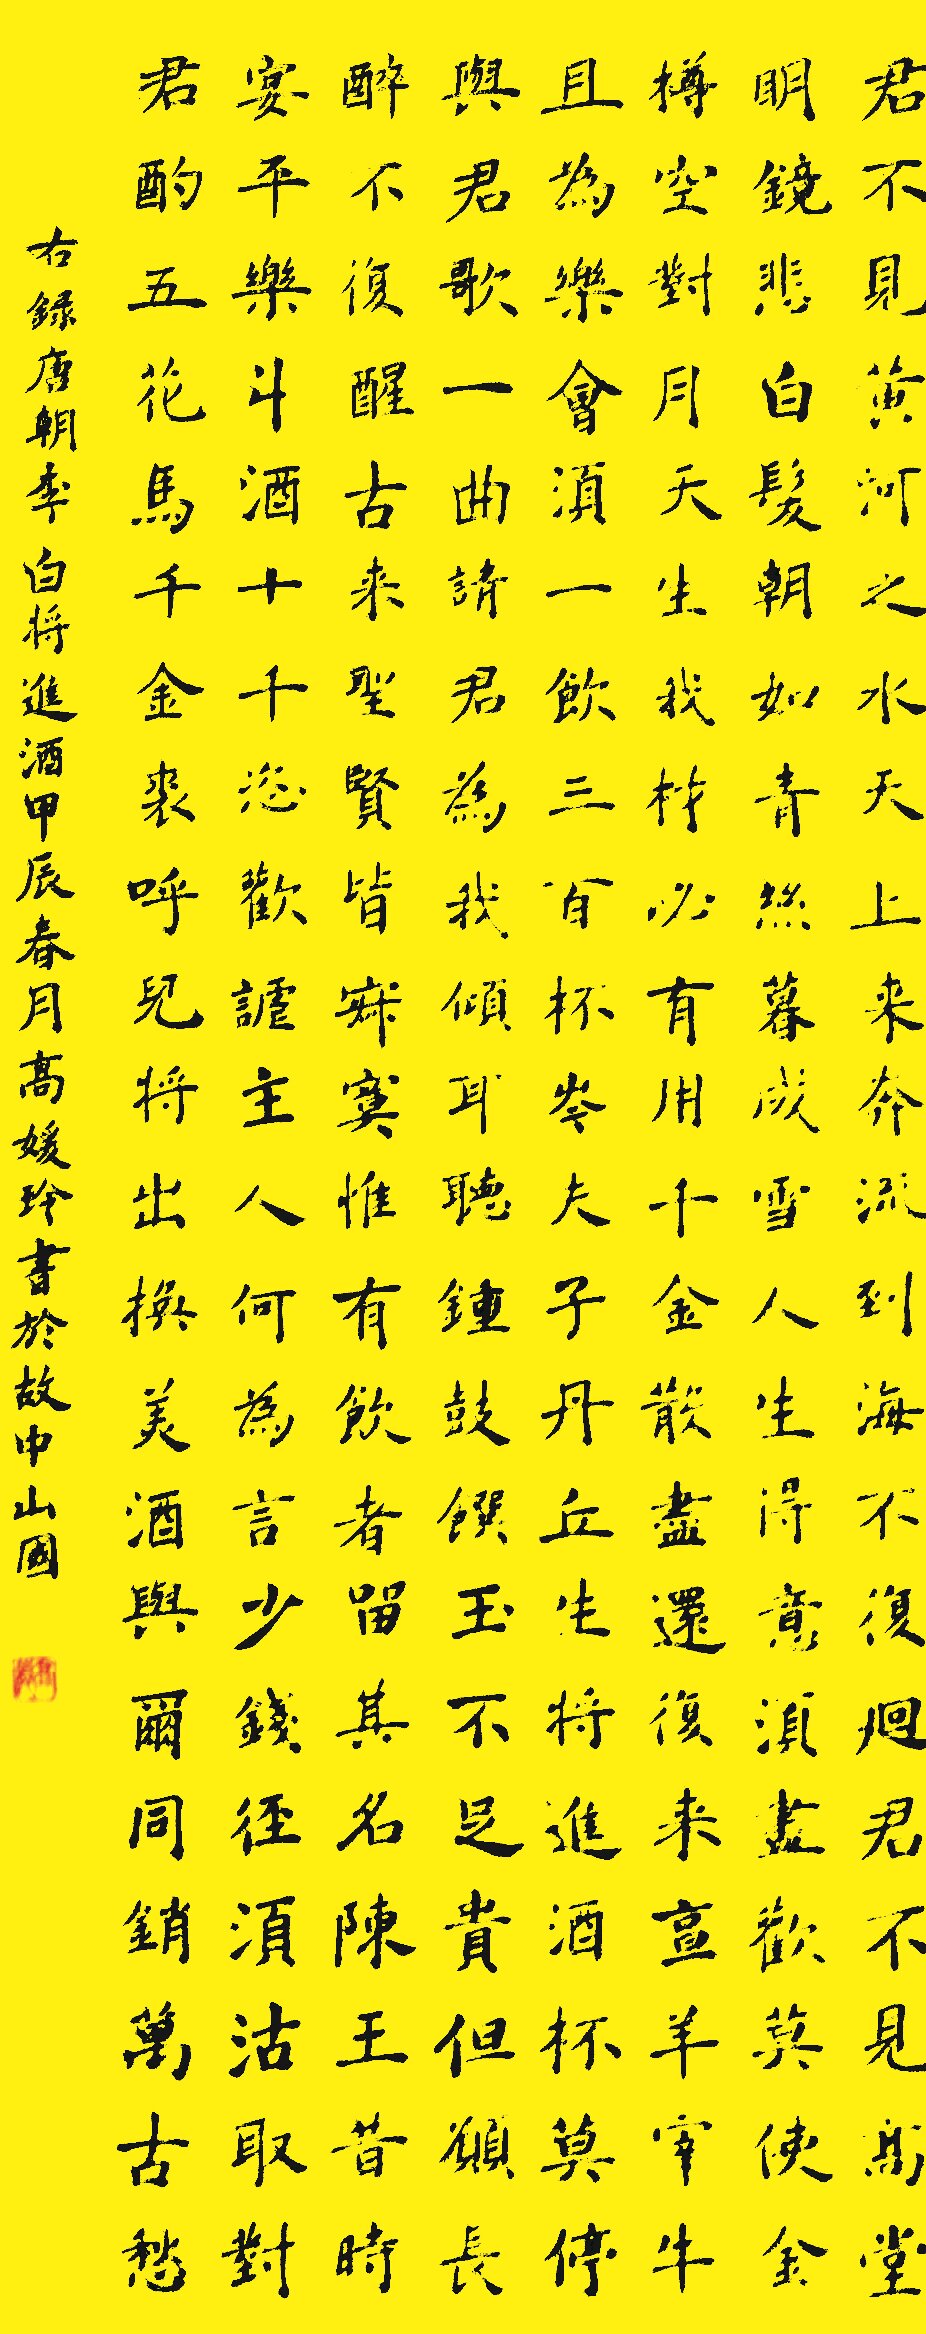 君不見黄河之水天上来奔流到海不復迴君不見高堂
明鏡悲白髮朝如青絲暮成雪人生得意須盡歡莫使金
樽空對月天生我材必有用千金散盡還復来亯羊宰牛
且為樂會須一飲三百杯岑夫子丹丘生将進酒杯莫停
與君歌一曲請君為我傾耳聽鍾鼓饌玉不足貴但願長
醉不復醒古来聖賢皆寂寞惟有飲者留其名陳王昔時
宴平樂斗酒十千恣歡謔主人何為言少錢徑須沽取對
君酌五花馬千金裘呼兒将出換美酒與爾同銷萬古愁
右録唐朝李白将進酒甲辰春月高媛玲書於故中山國